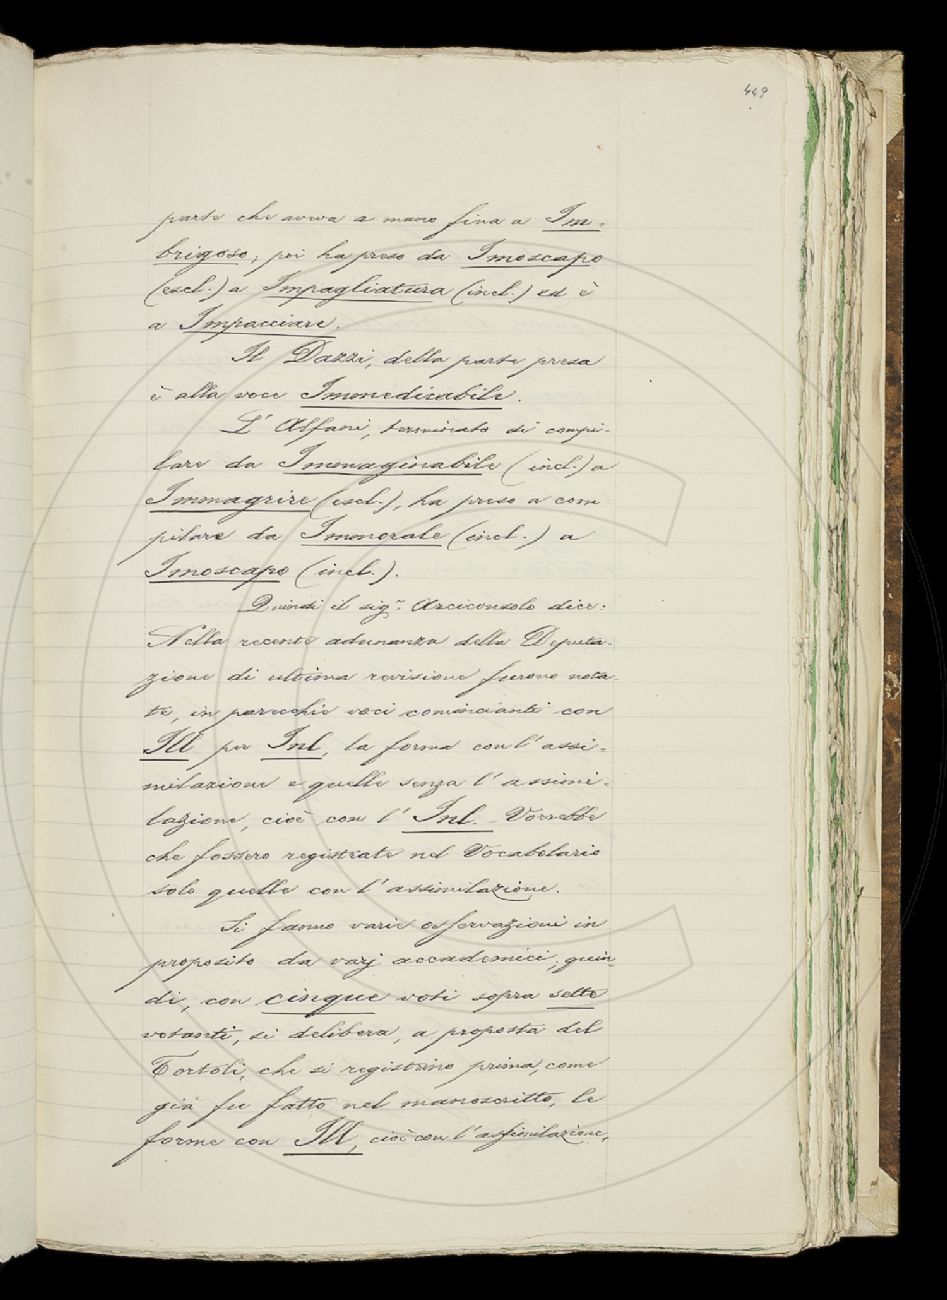 449
parte che aveva a mano fina a Im-
brigoso; poi ha preso da Imoscapo
(escl.) a Impagliatura (incl.) ed è
a Impacciare.
Il Dazzi, della parte presa
è alla voce Immedicabile.
L' Alfani, terminato di compi-
lare da Immaginabile (incl.) a
Immagrire (escl.), ha preso a com
pilare da Immorale (incl.) a
Imoscapo (incl.).
Quindi il sigr. Arciconsolo dice:
Nella recente adunanza della Deputa-
zione di ultima revisione furono nota-
te, in parecchie voci comincianti con
Ill per Inl, la forma con l' assi-
milazione e quelle senza l' assimi-
lazione, cioè con l' Inl. Vorrebbe
che fossero registrate nel Vocabolario
solo quelle con l' assimilazione.
Si fanno varie osservazioni in
proposito da varj accademici; quin-
di, con cinque voti sopra sette
votanti, si delibera, a proposta del
Tortoli, che si registrino prima, come
già fu fatto nel manoscritto, le
forme con Ill, cioè con l' assimilazione,